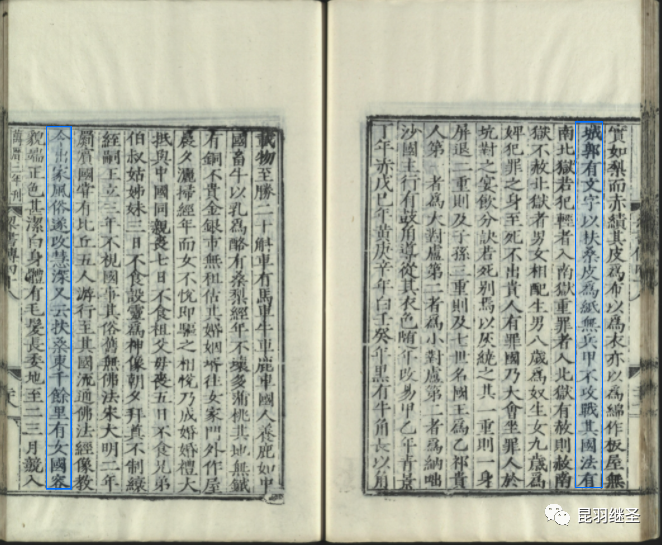 實如梨而赤績其皮為布以為衣亦以為綿作板屋無
城郭有文字以扶桑皮為紙無兵甲不攻戰其國法有
南北獄若犯輕者入南獄重罪者入北獄有赦則赦南
獄不赦北獄者男女相配生男八歲為奴生女九歲為
婢犯罪之身至死不出貴人有罪國乃大會坐罪人於
坑對之宴飲分訣若死別焉以灰繞之其一重則一身
屏退二重則及子孫三重則及七世名國王為乙祁貴
人第一者為大對盧第二者為小對盧第三者為納咄
沙國主行有鼓角導從其衣色隨年改易甲乙年青景
丁年赤戊己年黃庚辛年白壬癸年黑有牛角長以角
載物至勝二十斛車有馬車牛車鹿車國人養鹿如中
國畜牛以乳為酪有桑梨經年不壞多蒲桃其地無鐵
有銅不貴金銀市無租估其婚姻壻往女家門外作屋
晨夕灑掃經年而女不悅即驅之相悅乃成婚婚禮大
抵與中國同親喪七日不食祖父母喪五日不食兄弟
伯叔姑姊妹三日不食設靈為神像朝夕拜奠不制縗
絰嗣王立三年不視國事其俗舊無佛法宋大明二年
罽賓國嘗有比丘五人游行至其國流通佛法經像教
令出家風俗遂改慧深又云扶桑東千餘里有女國容
貌端正色甚潔白身體有毛髮長委地至二三月競入
昆羽继圣